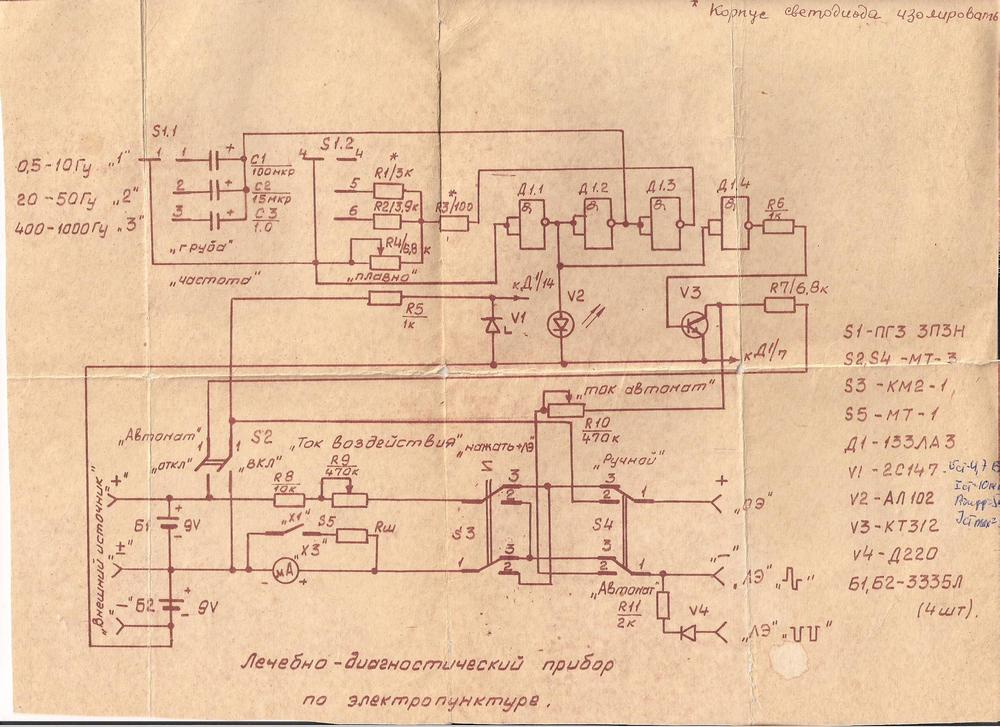 * Корпус светодиода изолировать
S1.1
S1.2
0,5-10Гц „1"
20-50Гц „2"
400-1000Гц „3"
1 1
2
3
+
+
+
C1
100мкр
C2
15мкр
C3
1.0
„груба"
„частота"
4 4
5
6
*
R1/3к
R2/3,9к
R4/6,8 к
„плавно"
*
R3/100
Д1.1
Д1.2
Д1.3
Д1.4
&
&
&
&
R6
1к
R5
1к
к Д1/14
V1
V2
V3
R7/6,8к
к Д1/7
„ток автомат"
R10
470к
„Автомат"
„откл"
1 1
S2
„вкл"
„Ток воздействия"
„нажать+ЛЭ"
„Ручной"
R8
10к
R9
470к
„Внешний источник"
+
±
„-"
Б1
9V
+
-
Б2
9V
+
-
„X1"
S5
Rш
„X3"
- мА +
1
3
2
S3
3
2
1
3
2
S4
3
2
1
1
„Автомат"
+
„ОЭ"
„-"
„ЛЭ"
R11
2к
V4
„ЛЭ"
S1-ПГ3 3П3Н
S2,S4 -МТ-3
S3 -КМ2-1
S5 -МТ-1
Д1-133ЛА3
V1 -2С147
V2 -АЛ102
V3-КТ312
V4-Д220
Б1,Б2-3335Л
(4шт).
Лечебно-диагностический прибор
по электропунктуре.